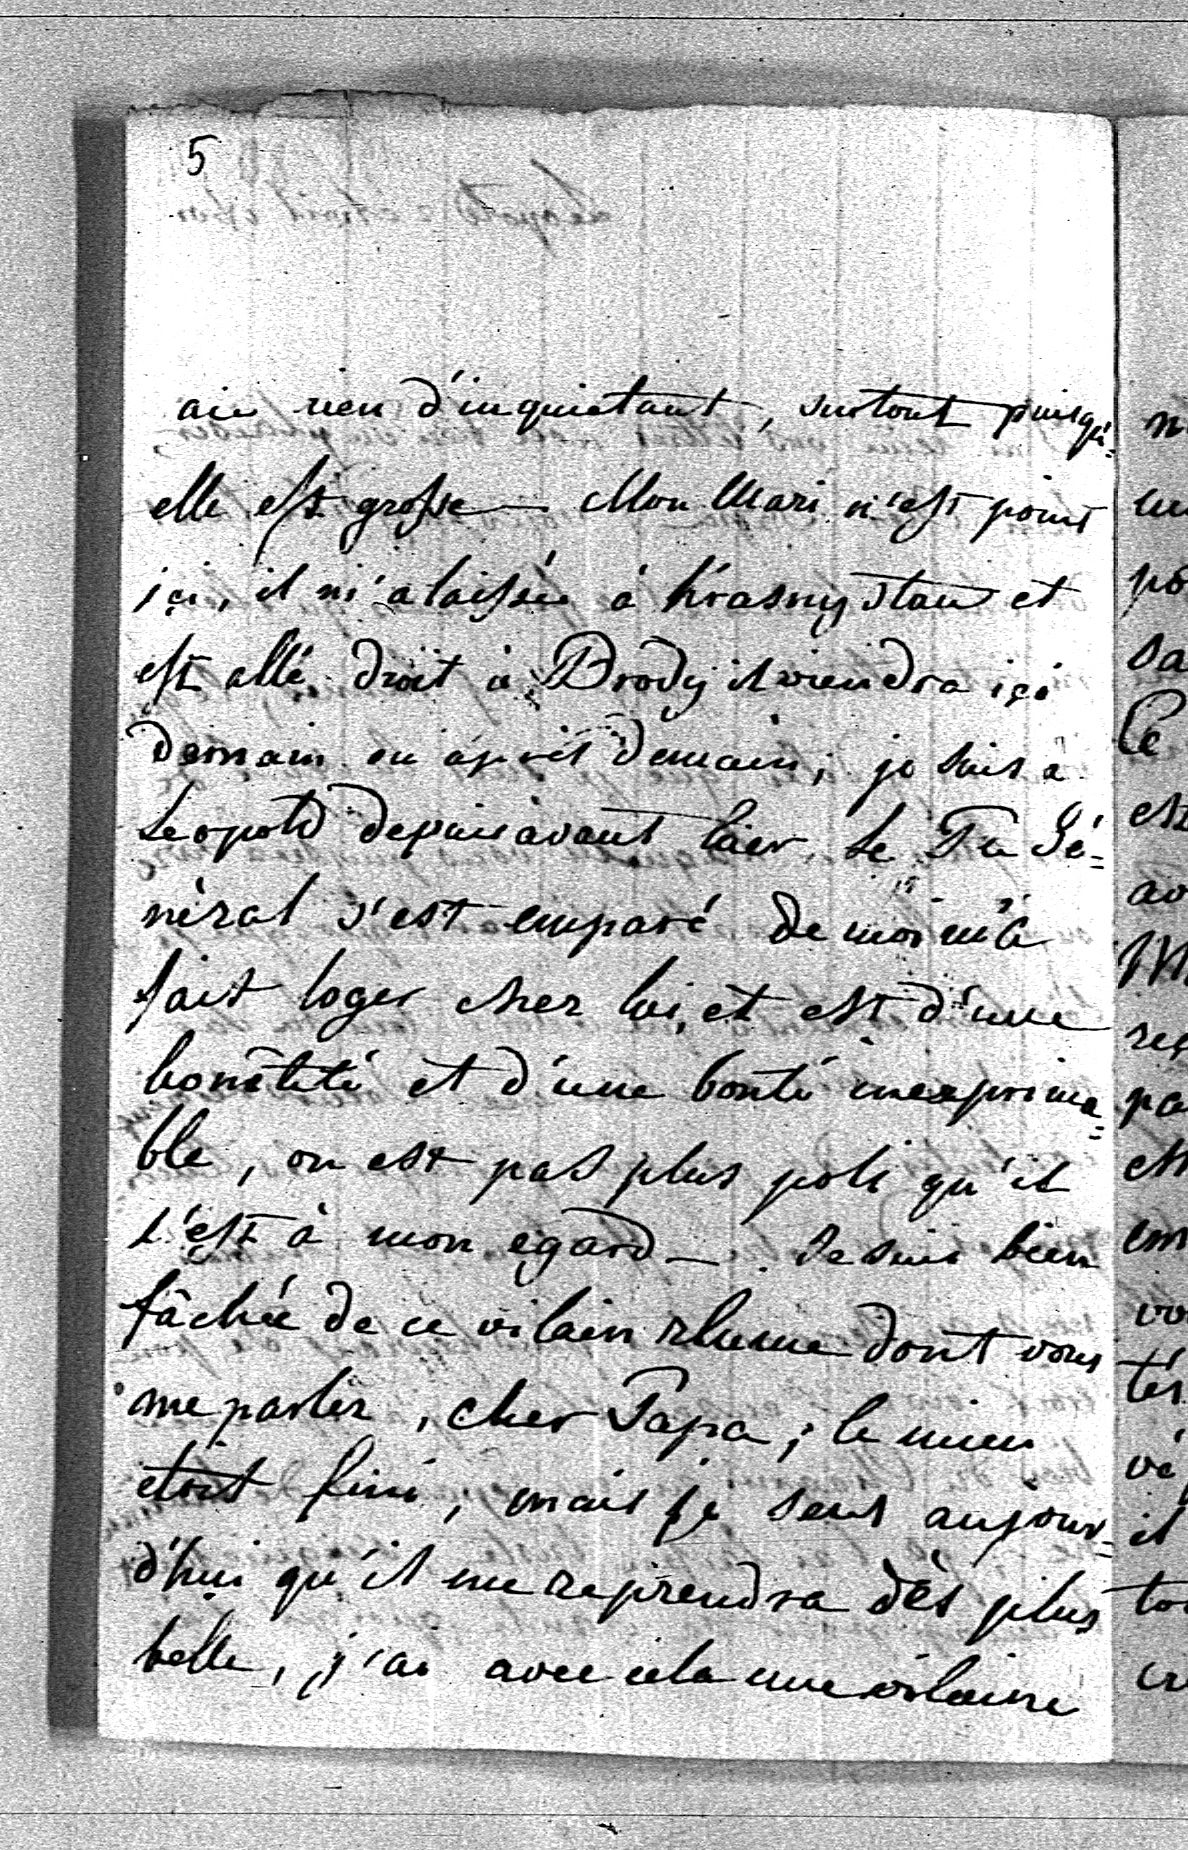 5
aie rien d'inquietant, surtout puisqu'=
elle est grosse — Mon Mari n'est point
içi, il m'a laissée à Krasnystaw et
est allé droit à Brody il viendra içi
demain ou après demain; je suis a
Leopold depuis avant hier, le Gé=
nèral s'est emparé de moi m'a
fait loger chez lui, et est d'une
honêteté et d'une bonté inexprima=
ble, on est pas plus poli qu'il
l'est à mon egard —. Je suis bien
fâchée de ce vilain rhume dont vous
me parlez, cher Papa; le mien
etoit fini, mais je sens aujour=
d'hui qu'il me reprendra dès plus
belle, j'ai avec cela une vilaine